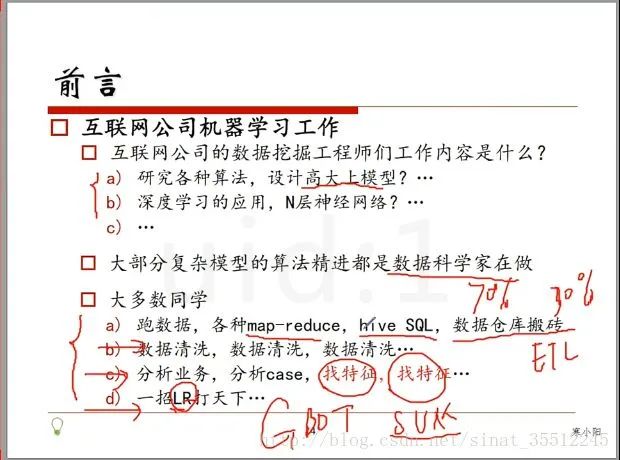 前言
互联网公司机器学习工作
互联网公司的数据挖掘工程师们工作内容是什么？
a) 研究各种算法，设计高大上模型？…
b) 深度学习的应用，N层神经网络？…
c) …
uid:1
大部分复杂模型的算法精进都是数据科学家在做
70% 30%
大多数同学
a) 跑数据，各种map-reduce，hive SQL，数据仓库搬砖
ETL
b) 数据清洗，数据清洗，数据清洗…
c) 分析业务，分析case，找特征，找特征…
d) 一招LR打天下…
GBDT
http://blog.csdn.net/sinat_35512245
寒小阳